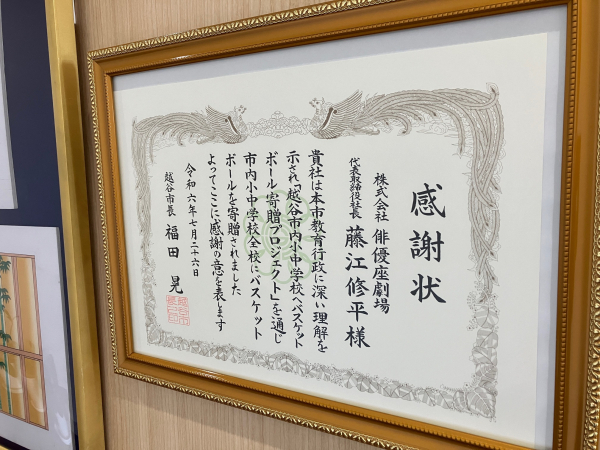 感謝状
株式会社 俳優座劇場
代表取締役社長 藤江修平様
貴社は本市教育行政に深い理解を
示され「越谷市内小中学校へバスケット
ボール寄贈プロジェクト」を通じ
市内小中学校全校にバスケット
ボールを寄贈されました
よってここに感謝の意を表します
令和六年七月二十六日
越谷市長 福田 晃